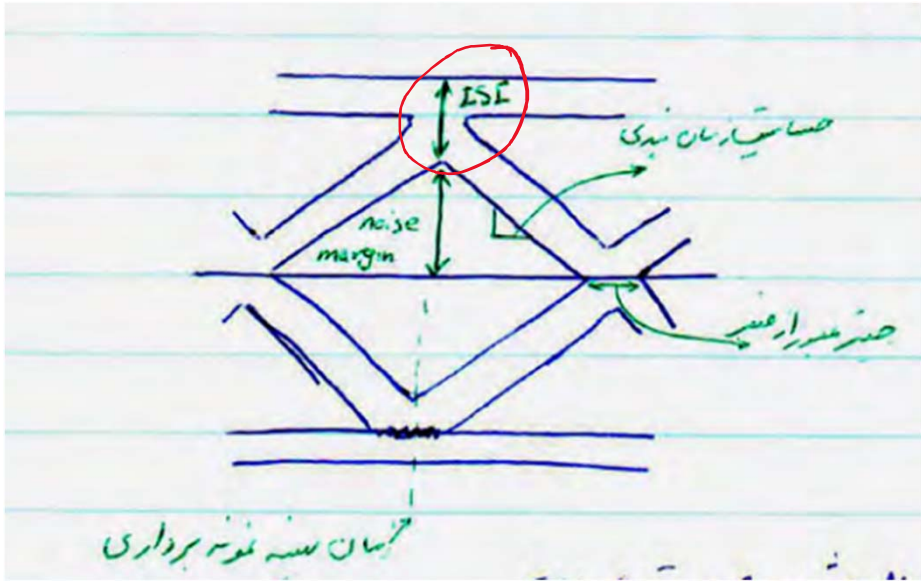 ISI
حساسیت زمان بندی
noise
margin
جیتر عبور از صفر
زمان بهینه نمونه برداری